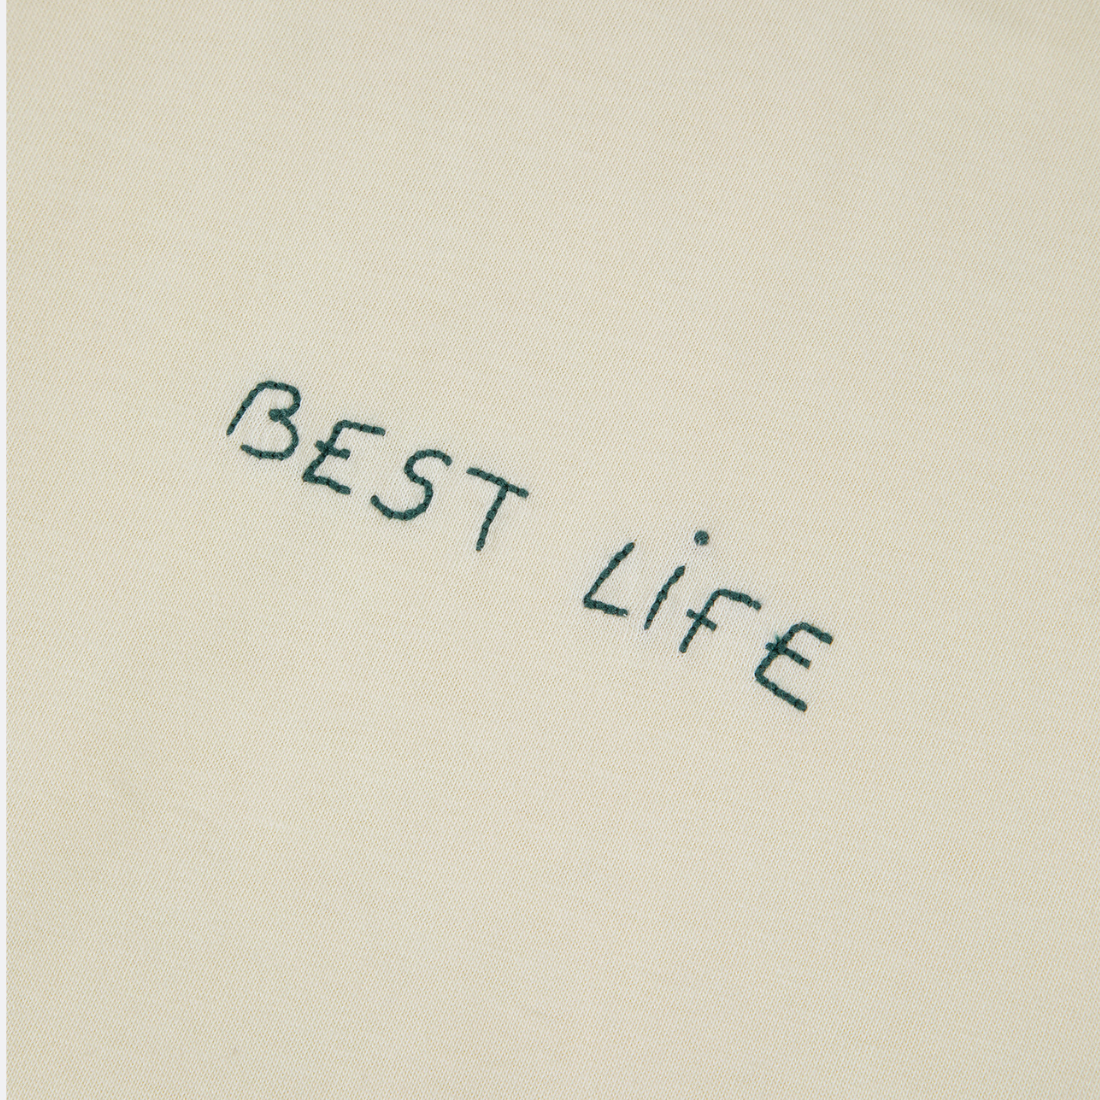 BEST LiFE